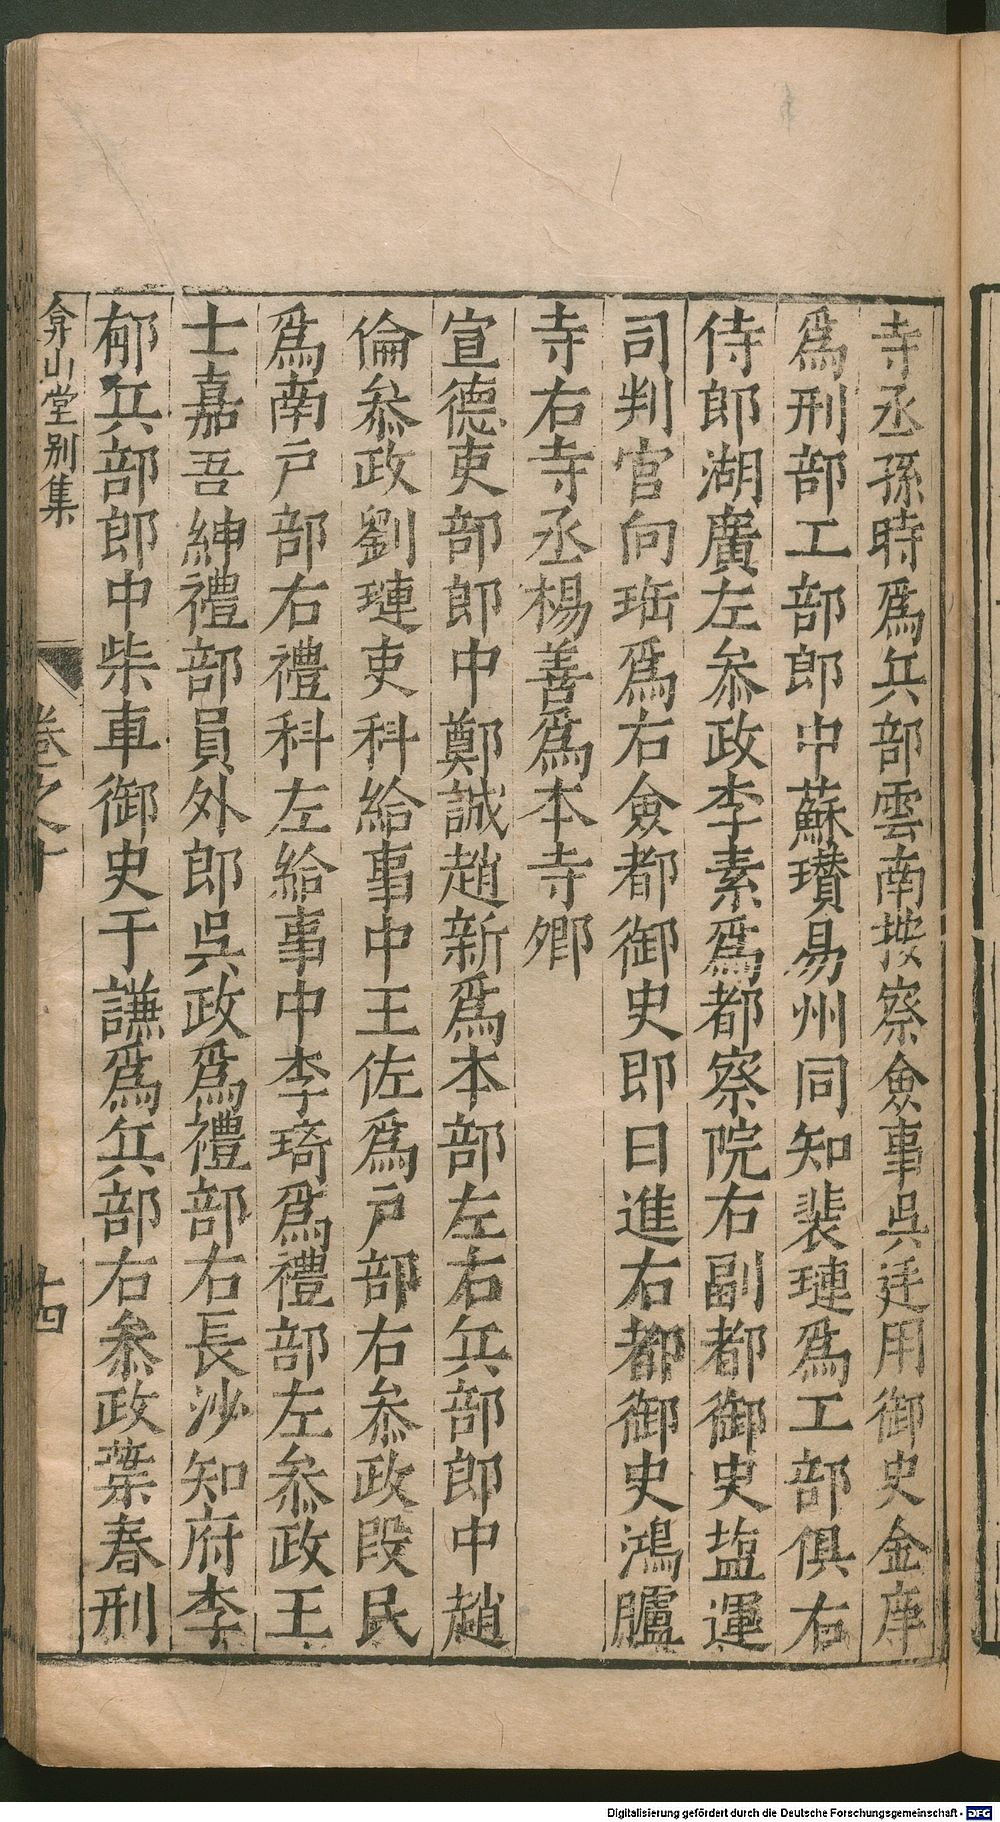 寺丞孫時爲兵部雲南按察僉事吳廷用御史金庠
爲刑部工部郎中蘇瓚易州同知裴璉爲工部俱右
侍郎湖廣左叅政李素爲都察院右副都御史塩運
司判官向珤爲右僉都御史即日進右都御史鴻臚
寺右寺丞楊善爲本寺卿
宣德吏部郎中鄭誠趙新爲本部左右兵部郎中趙
倫叅政劉璉吏科給事中王佐爲戶部右叅政段民
爲南戶部右禮科左給事中李琦爲禮部左叅政王
士嘉吾紳禮部員外郎吳政爲禮部右長沙知府李
郁兵部郎中柴車御史于謙爲兵部右叅政葉春刑
弇山堂别集
卷之十
十四
Digitalisierung gefördert durch die Deutsche Forschungsgemeinschaft - DFG